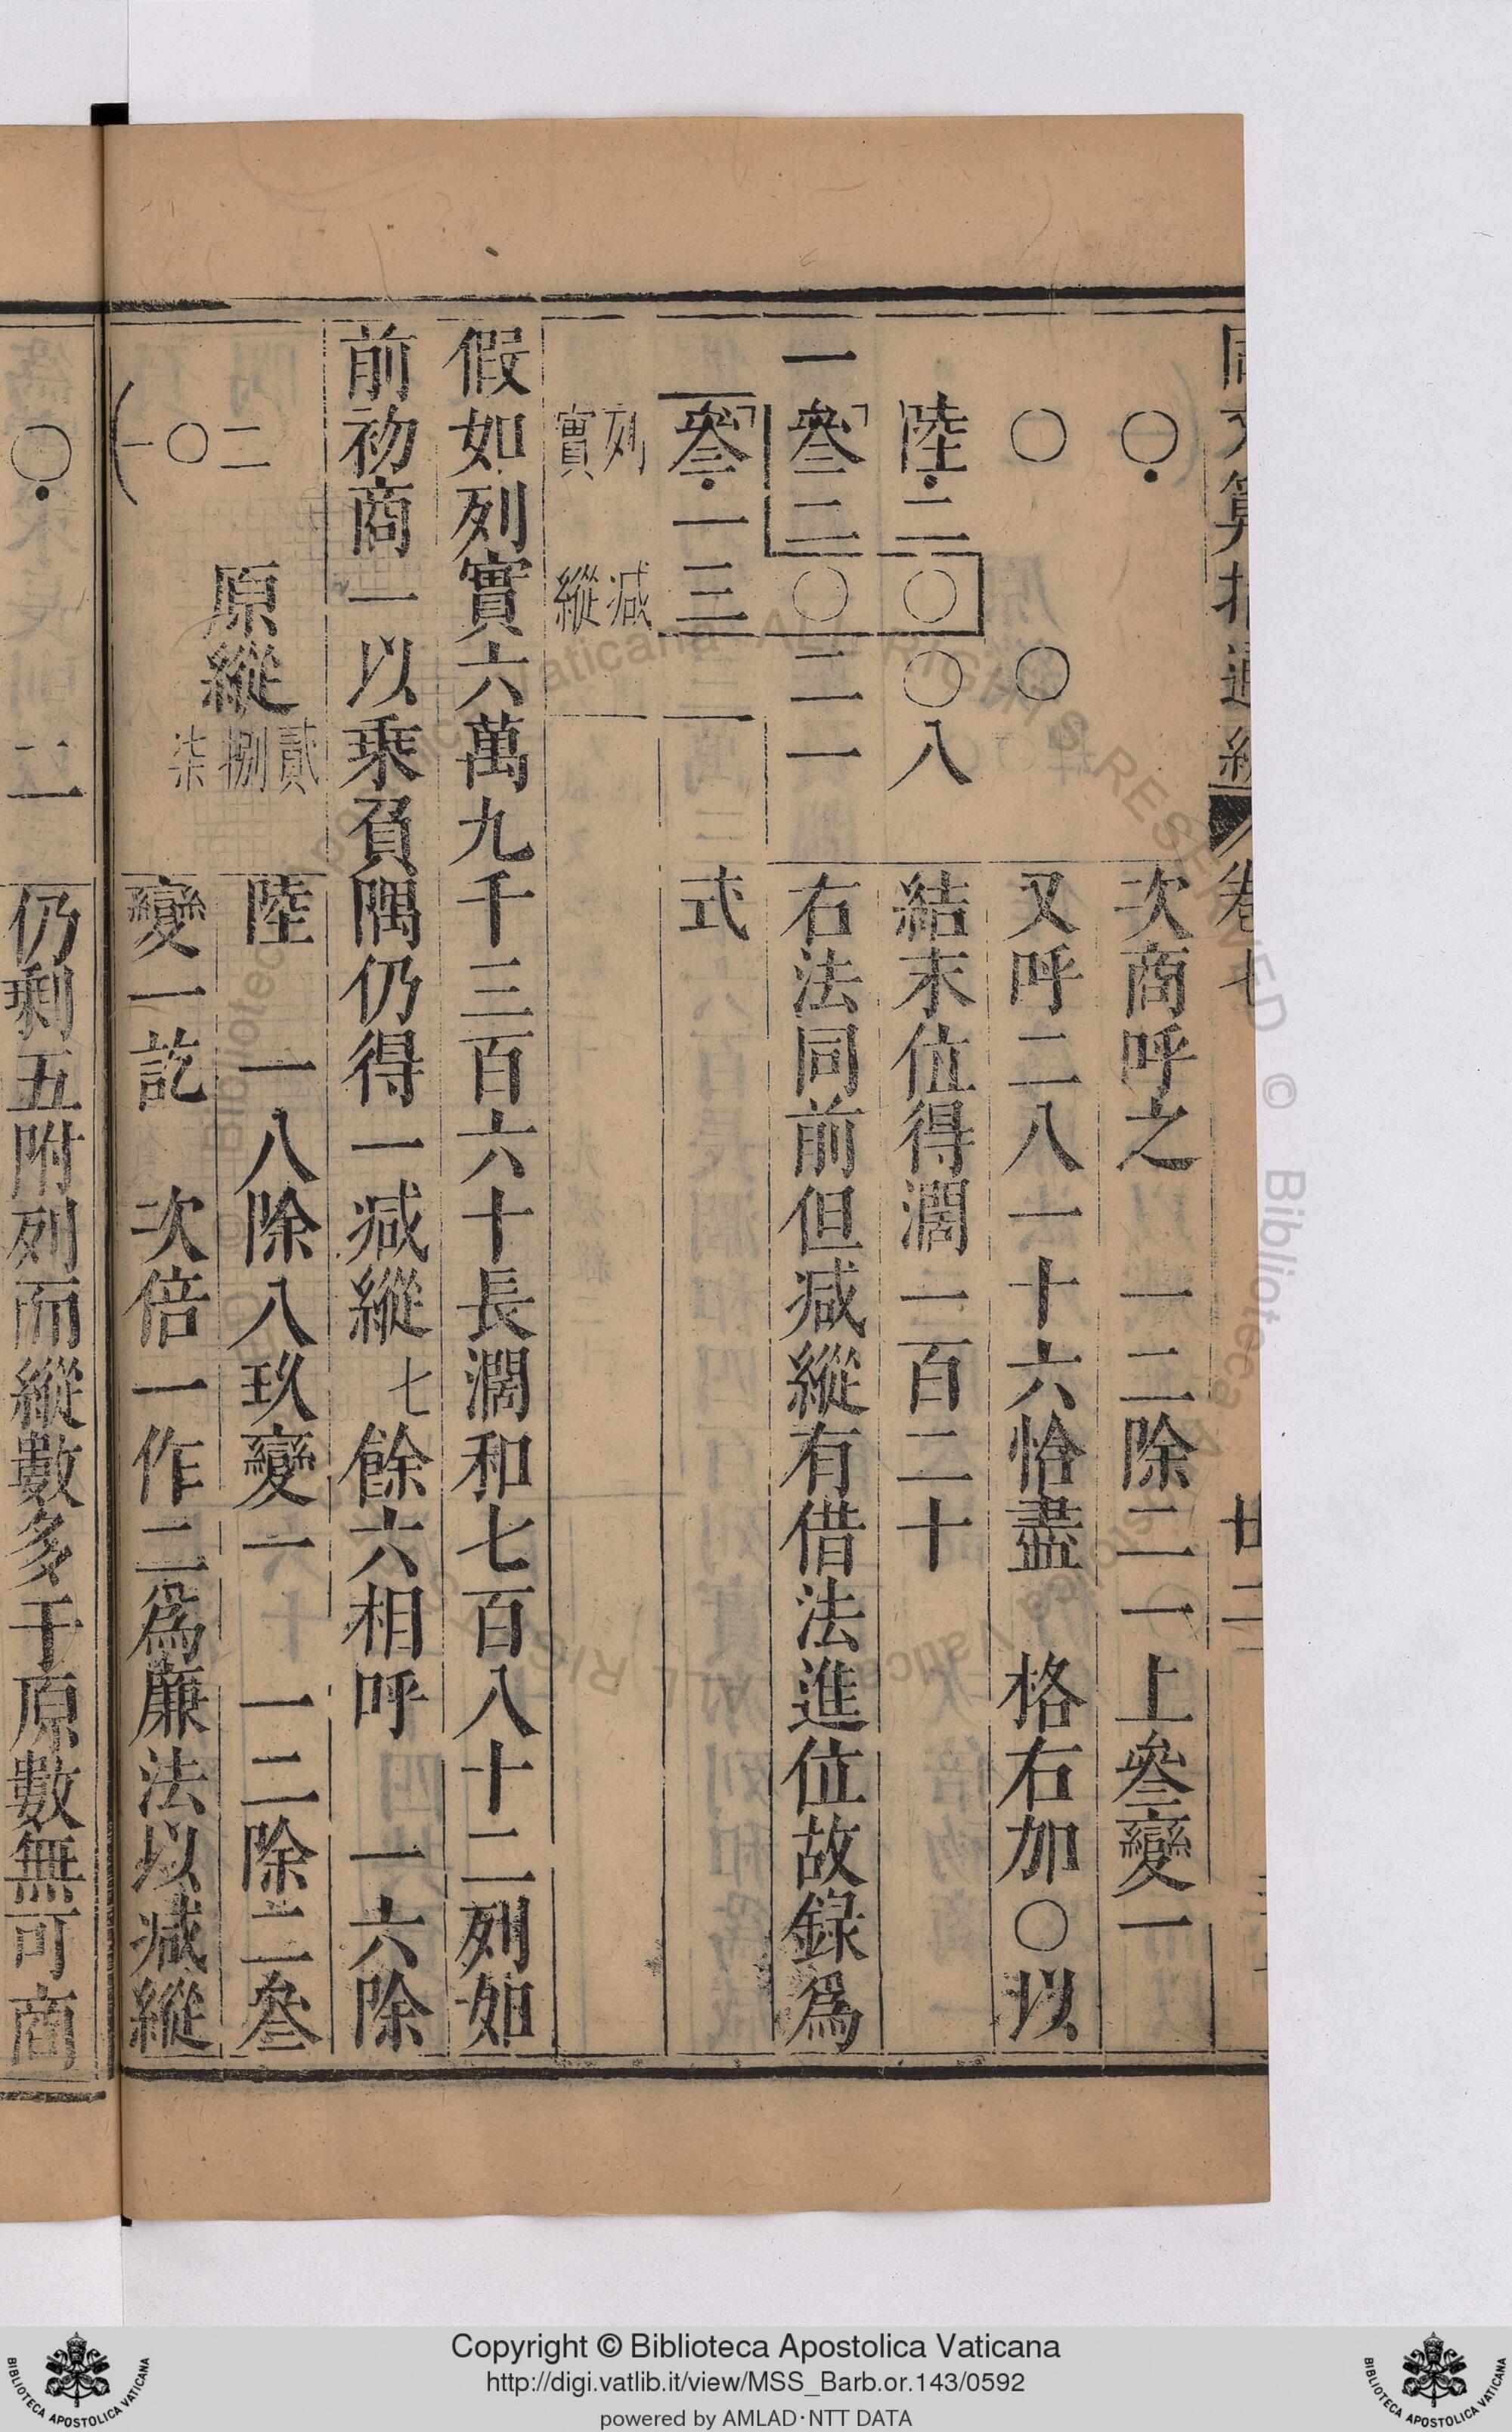 同文算指通編 卷七 廿二
〇 次商呼之 一二除二 一上叄變一
〇 〇 又呼二八一十六恰盡 格右加〇以
陸二〇〇八 結末位得濶一百二十
一叄二〇二一 右法同前但减縱有借法進位故錄爲
叄一三 式
列實 减縱
假如列實六萬九千三百六十長濶和七百八十二列如
前初商一以乘負隅仍得一减縱七餘六相呼 一六除
二 原縱 貳捌柒 陸 一八除八玖變一 一二除二叄
一〇 變一訖 次倍一作二爲廉法以减縱
〇 二 仍剩五附列而縱數多于原數無可商
Copyright © Biblioteca Apostolica Vaticana
http://digi.vatlib.it/view/MSS_Barb.or.143/0592
powered by AMLAD·NTT DATA
BIBLIOTECA APOSTOLICA VATICANA
BIBLIOTECA APOSTOLICA VATICANA